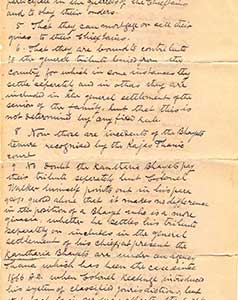 and to obey their orders
5. That they can mortgage or sell their
giras to their Chieftains.
6. That they are bound to contribute
to the general tribute levied upon the
country for which in some instances they
settle separately and in others they are
included in the general settlement of the
senior of the family, but that this is
not determined by any fixed rule.
8. Now these are incidents of the Bhayati
tenure recognised by the Rajasthanik
court
9. No Doubt the Kanthária Bhayats pay
their tribute seperately but Colonel
Walker himself points out in his para
quoted above that it makes no difference
in the position of a Bhayat and as a mere
girasia, whether he settles his tribute
separately or includes in the general
settlement of his chief. At present the
Kantharia Bhayats are under an agency
Thana which has been the case since
1862 when Colonel Keatinge introduced
his system of classified jurisdiction, but